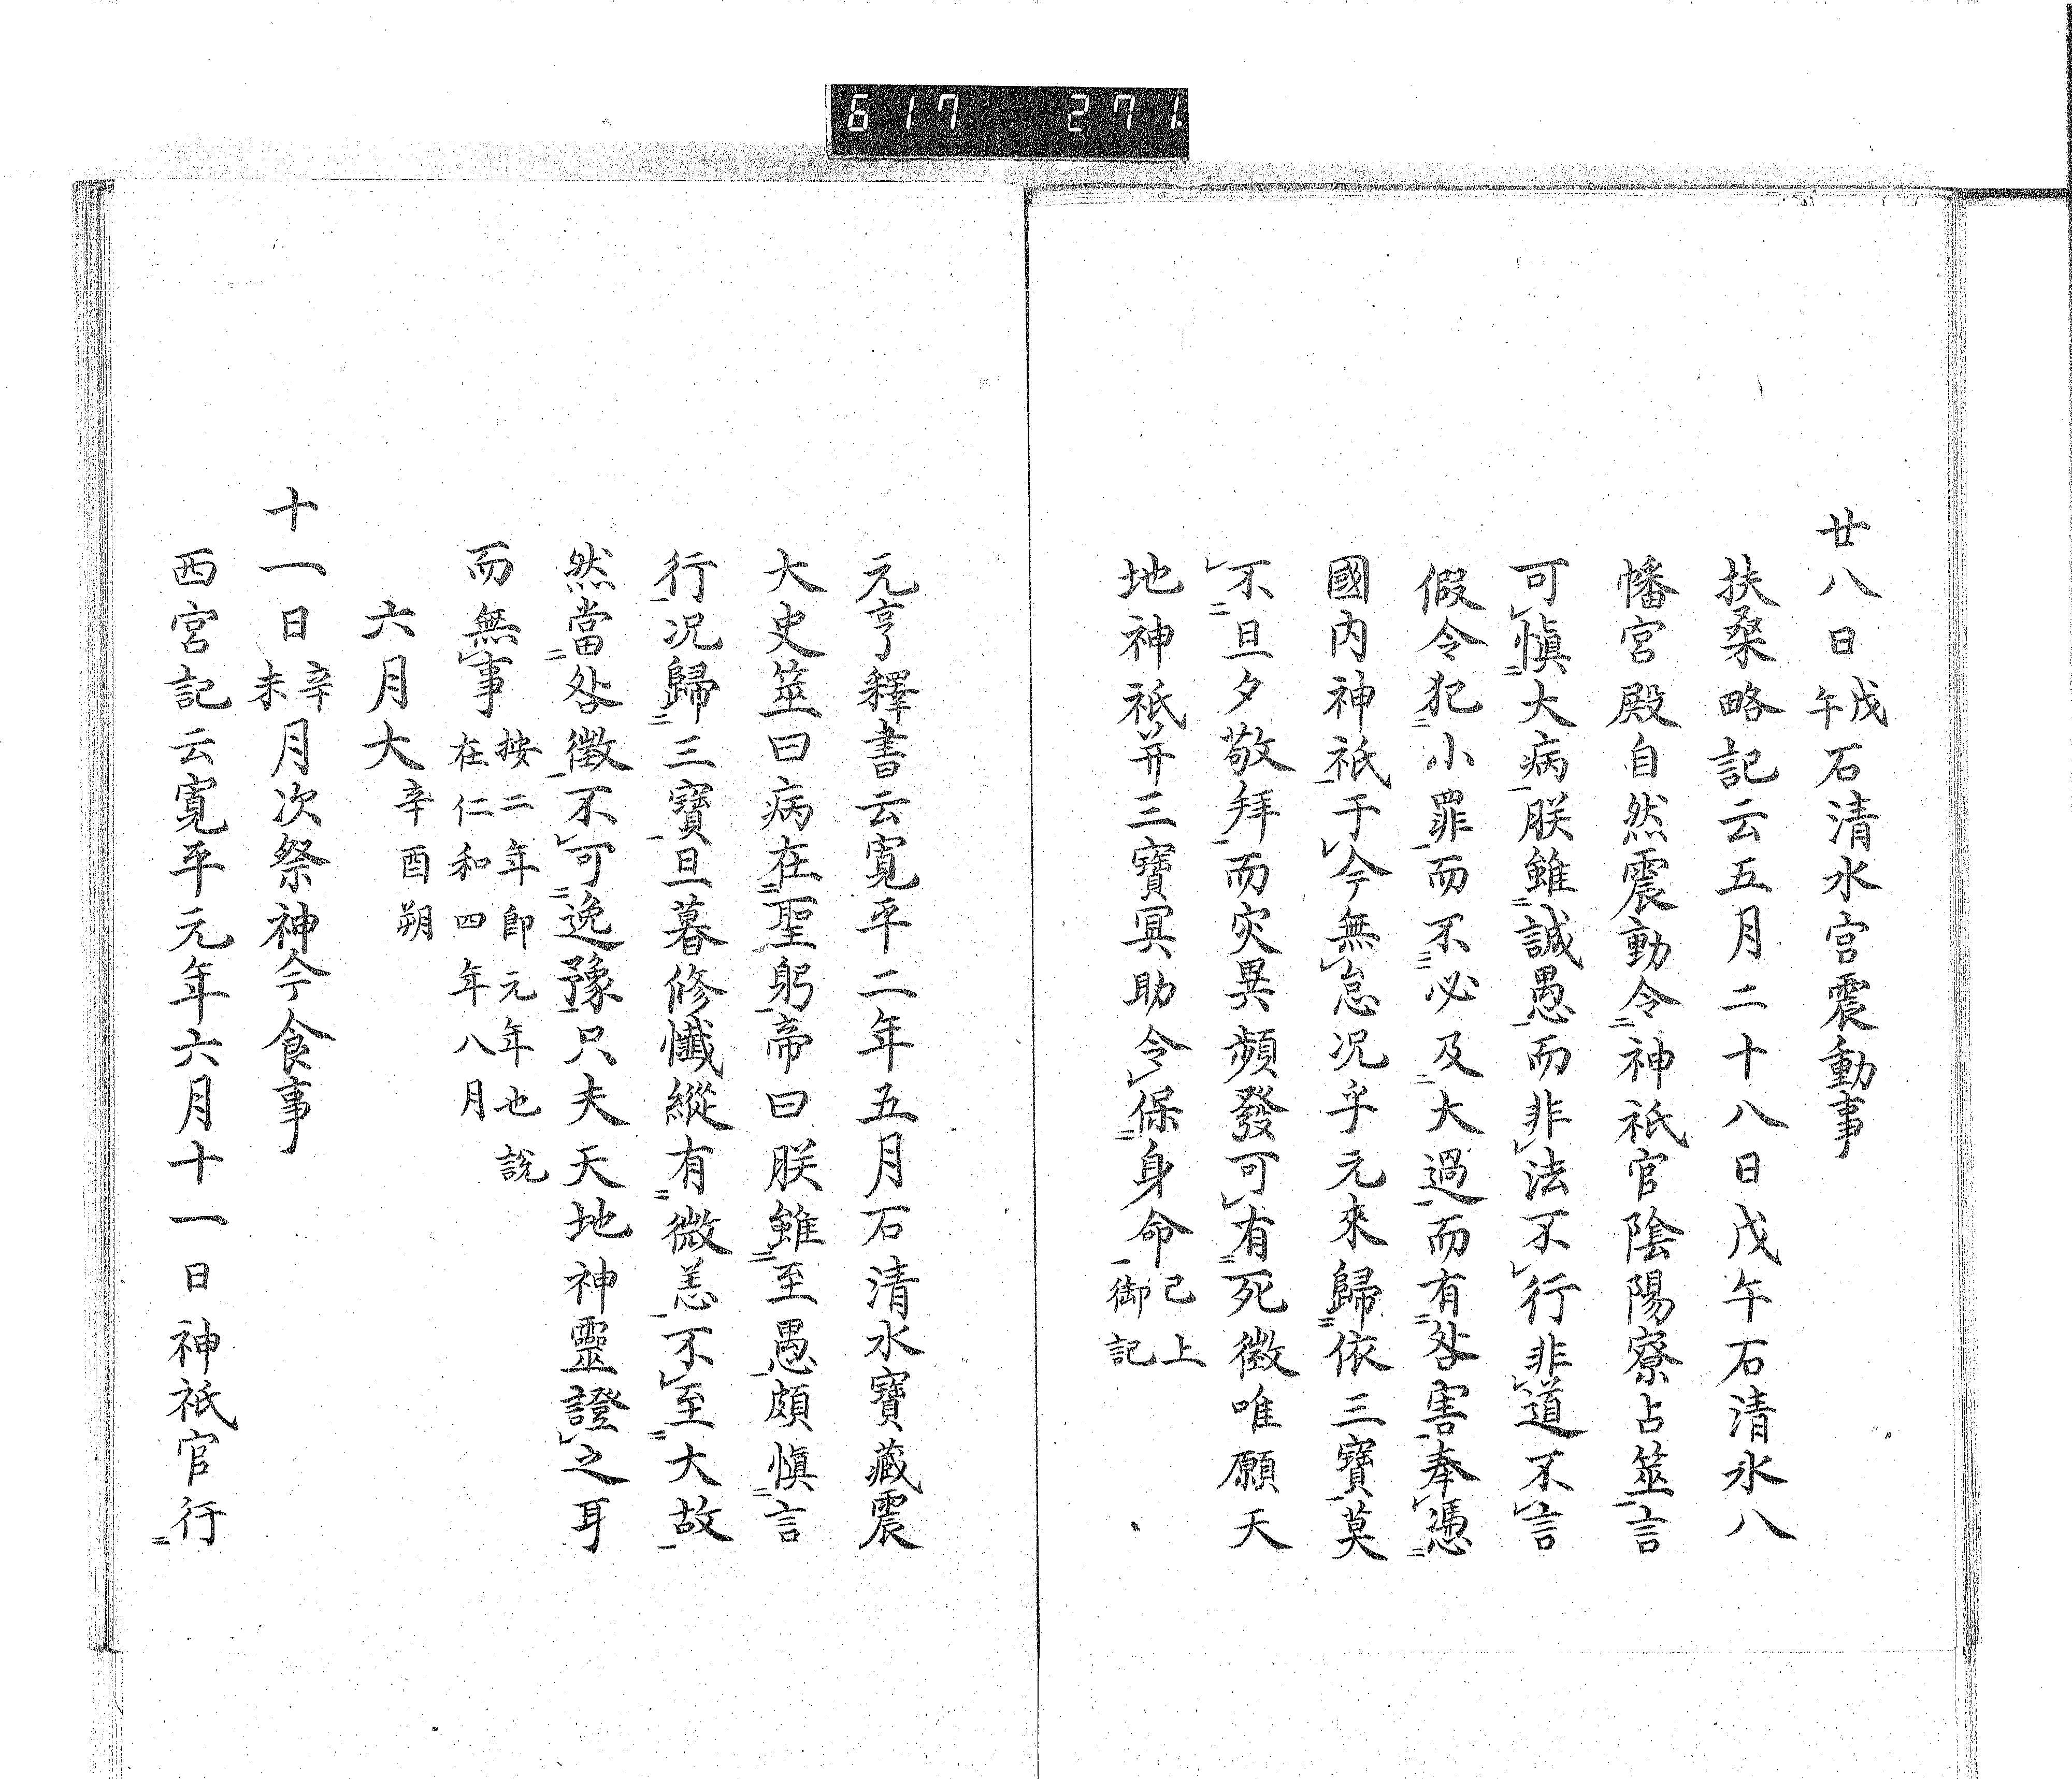 617 271.
廿八日戊午石清水宮震動事
扶桑略記云五月二十八日戊午石清水八
幡宮殿自然震動令神祇官陰陽寮占筮言
可慎大病朕雖誠愚而非法不行非道不言
假令犯小罪而不必及大過而有咎害奉憑
國内神祇于今無怠况乎元來歸依三寶莫
不旦夕敬拜而灾異頻發可有死徵唯願天
地神祇并三寶冥助令保身命已上御記
元亨釋書云寛平二年五月石清水寶藏震
大史筮曰病在聖躬帝曰朕雖至愚頗慎言
行况歸三寶旦暮修懺縱有微恙不至大故
然當咎徵不可逸豫只夫天地神靈證之耳
而無事按二年即元年也説在仁和四年八月
六月大辛酉朔
十一日辛未月次祭神今食事
西宮記云寛平元年六月十一日神祇官行